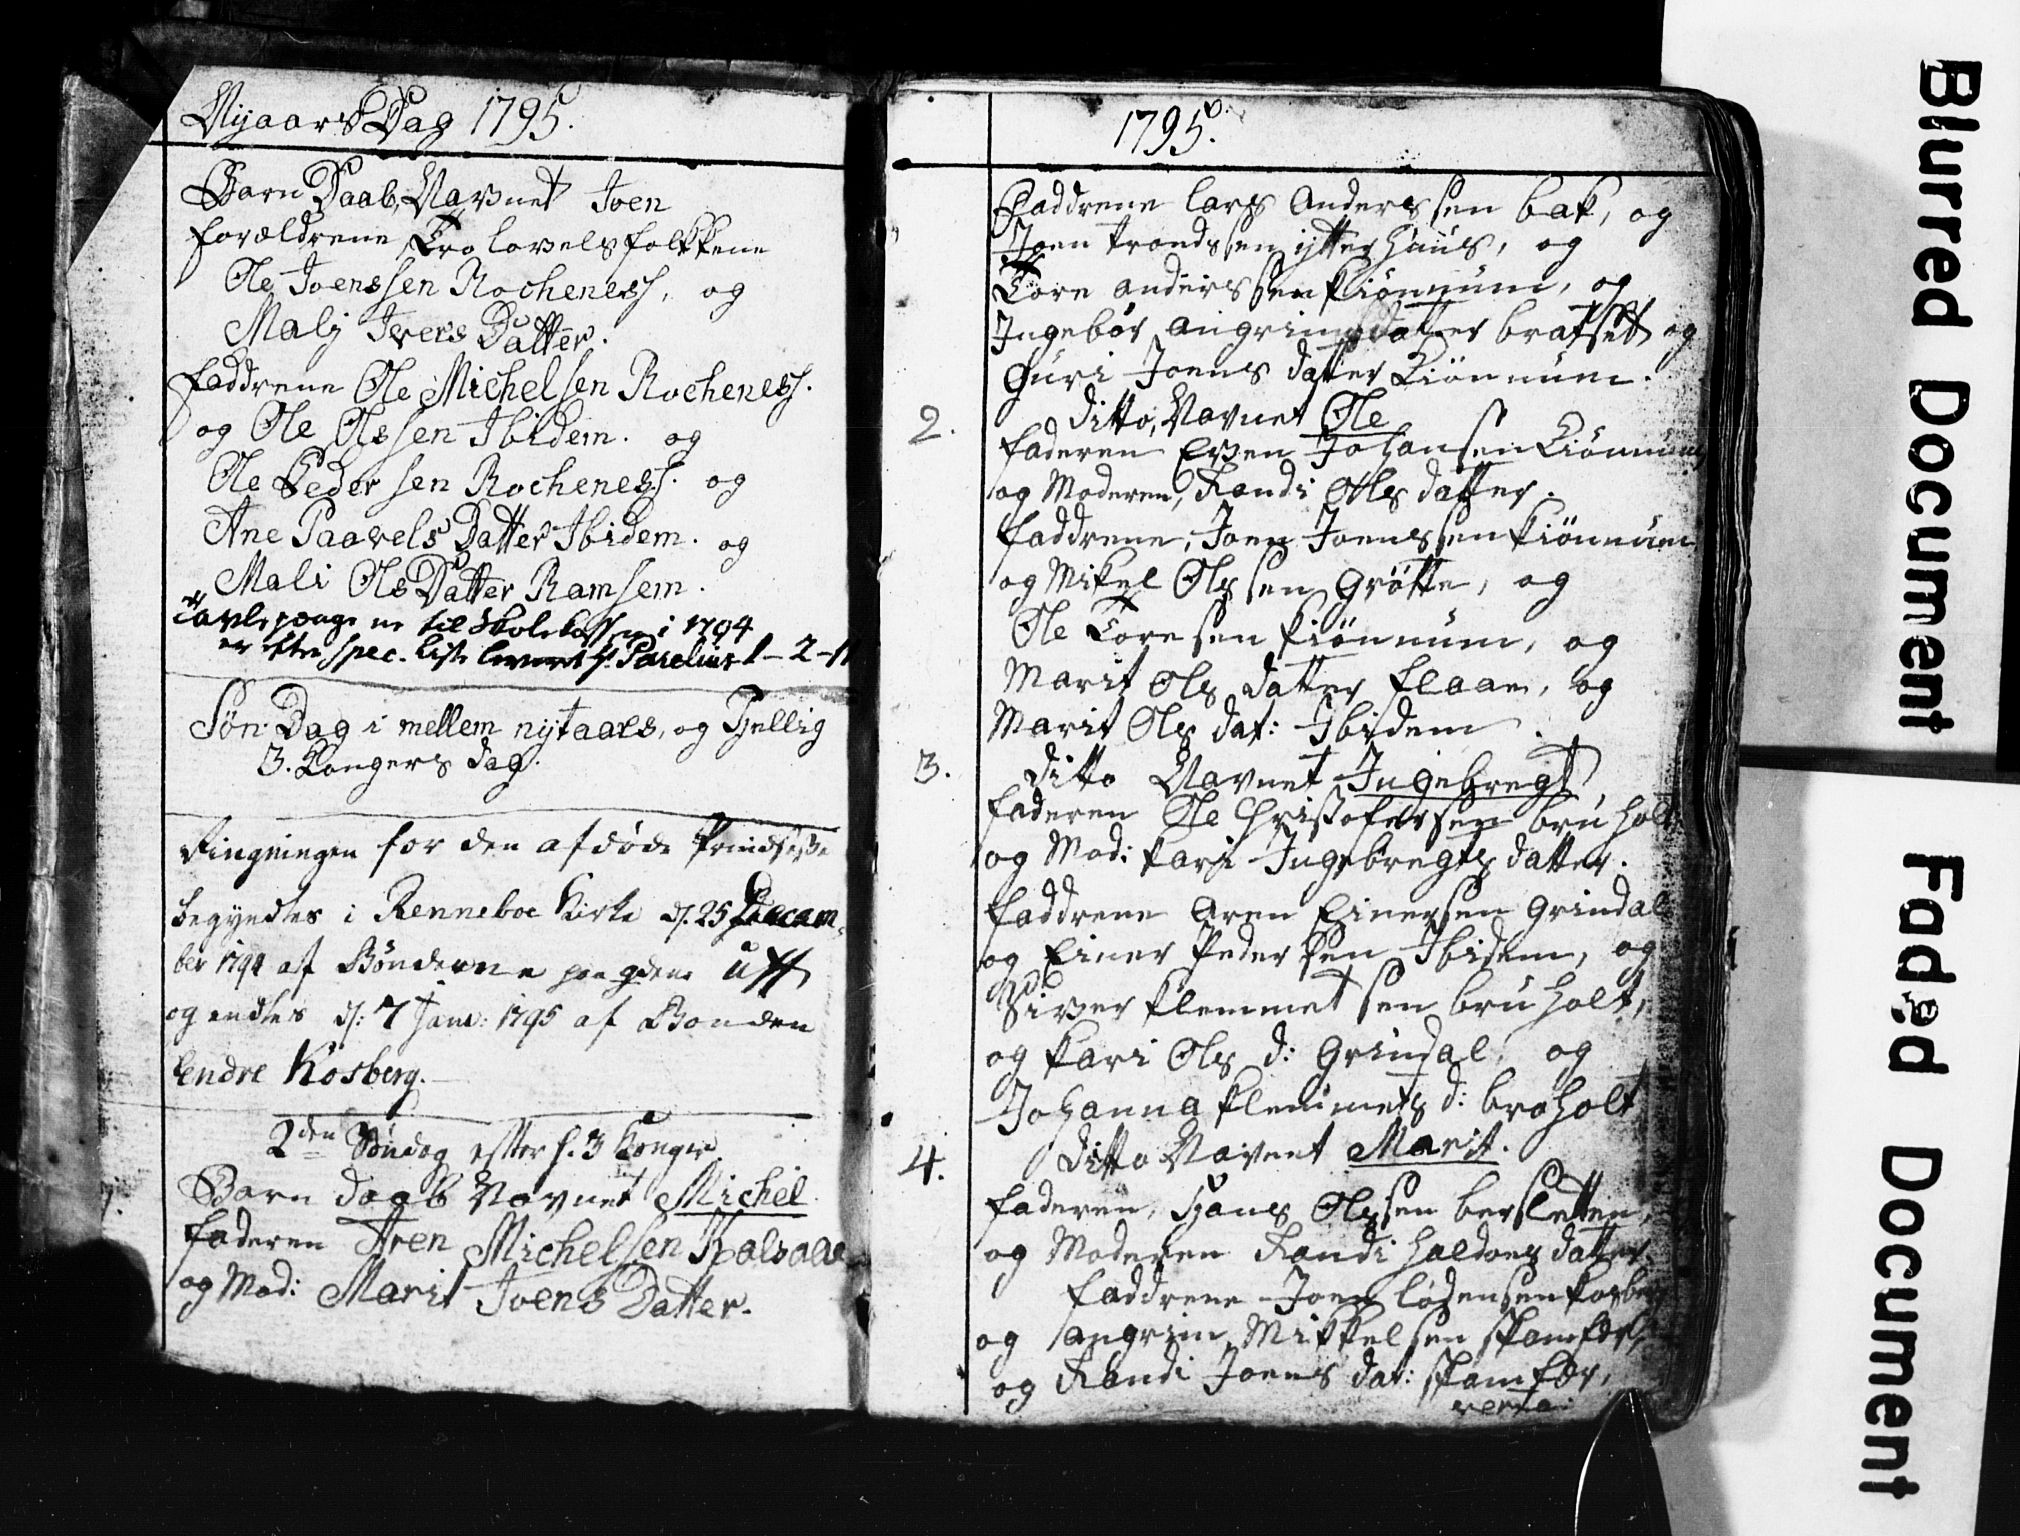 Nyaars Dag 1795.
Barn Daab, Navnet Joen
forældrene Trolovelsfolkkene
Ole Joenssen Rocheness, og
Malj Ivers Datter.
faddrene Ole Michelsen Rocheness.
og Ole Olssen Ibidem. og
Ole Pedersen Rocheness. og
Ane Paavels Datter Ibidem. og
Mali Ols Datter Ramsem.
Tavlepenge ne til Skolekassen i 1794
er efter spec. liste leveret hr. Parelius 1-2-11
Søn Dag i mellem nijtaars, og Hellig
3. Kongers dag.
Ringningen for den afdøde Prindsesse
begyndtes i Renneboe Kirke d. 25 Decem-
ber 1794 af Bønderne paa gdene Uff
og endtes d: 7 Janv: 1795 af Bonden
Endre Kosberg.
2den Søndag efter h. 3 Konger
Barn daab Navnet Michel
faderen Aren Michelsen Halsaae
og Mod: Marit Joens Datter.
1795.
Faddrene Lars Anderssen bak, og
Joen trondssen ytterhuus, og
Tore anderssen kiönnum, og
Ingebør angrims datter bratset og
Guri Joens datter Kiönnum.
2.
ditto, Navnet Ole
faderen Even Johansen Kiönnum
og Moderen, Randi Ols datter.
faddrene, Joen Joenssen kiönnum
og Mikel Olssen Grötte, og
Ole Toresen kiönnum, og
Marit Ols datter flaam, og
Marit Ols dat: Ibidem.
3.
ditto Navnet Ingebregt,
faderen Ole Christofersen bruholt
og Mod: kari Ingebregts datter.
faddrene Aren Einersen Grindal
og Einer Pedersen Ibidem, og
Siver klemmetsen bruholt,
og kari Ols d: Grindal, og
Johanna klemmets d: broholt
4.
ditto Navnet Marit.
faderen, Hans Olssen bersletten,
og Moderen Randi haldoes datter
faddrene Joen lodensen kosberg
og angrim Mikkelsen skamfer,
og Randi Joens dat: skamfer,
verte
Blurred Document
Faded Document